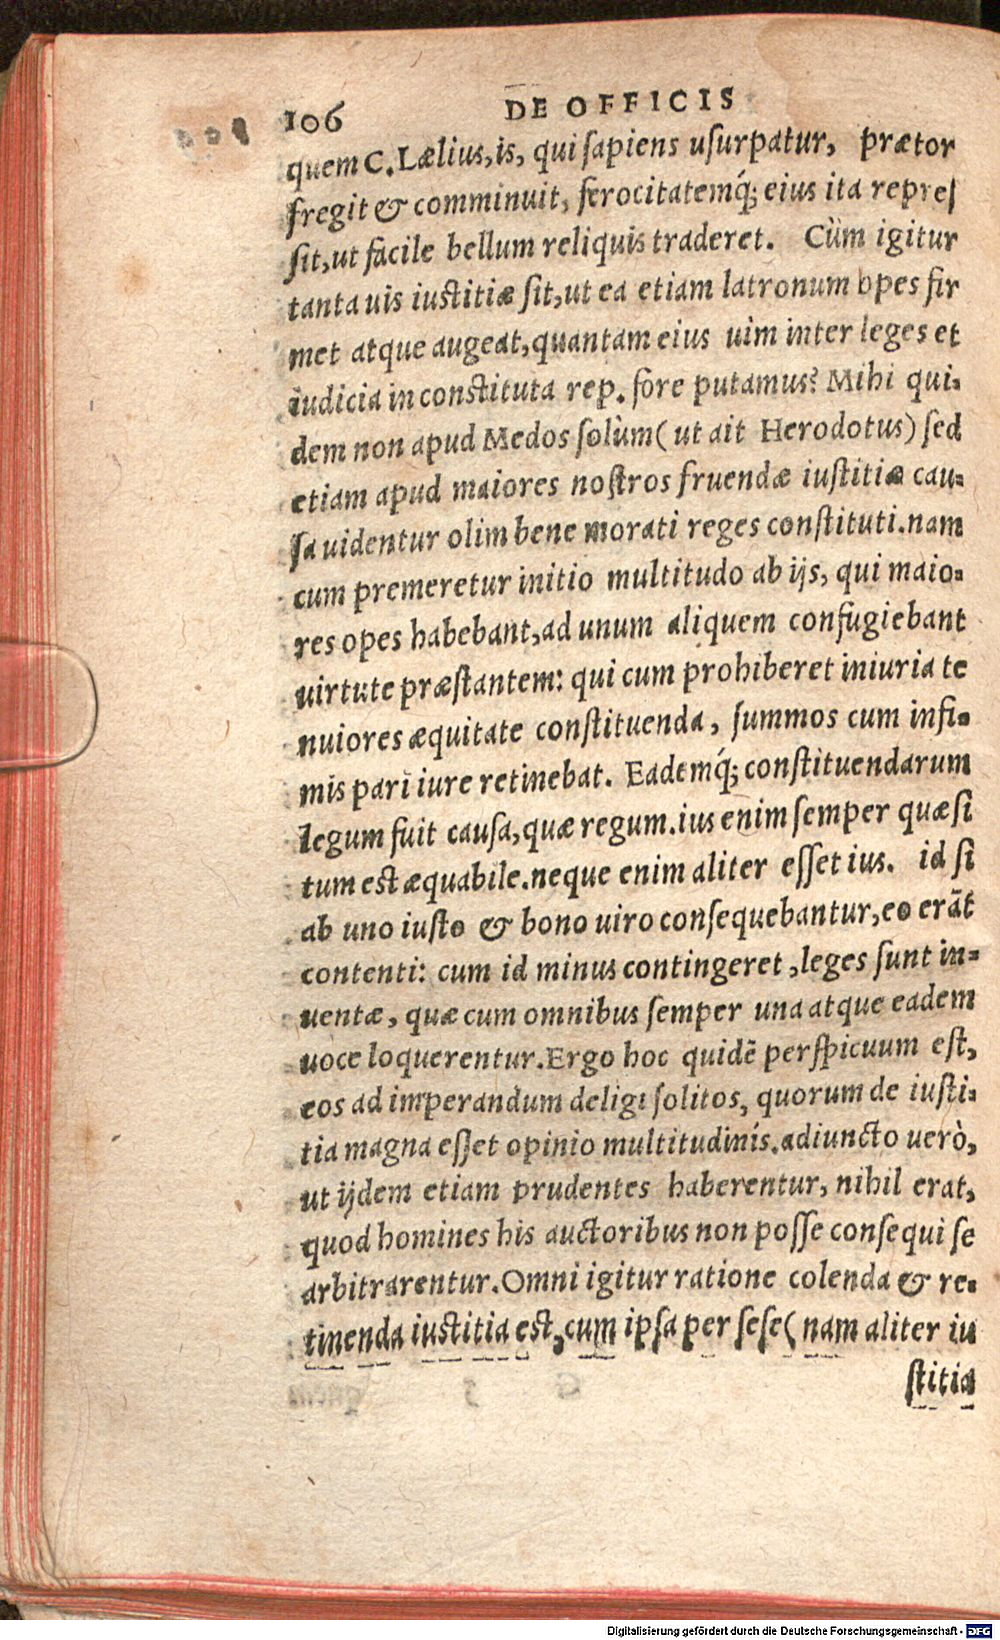 106 DE OFFICIS
quem C. Lælius, is, qui sapiens usurpatur, prætor
fregit & comminuit, ferocitatemq́; eius ita repreſ
ſit, ut facile bellum reliquis traderet. Cùm igitur
tanta uis iustitiæ ſit, ut ea etiam latronum opes fir
met atque augeat, quantam eius uim inter leges et
iudicia in constituta rep. fore putamus? Mihi qui-
dem non apud Medos ſolùm (ut ait Herodotus) ſed
etiam apud maiores noſtros fruendæ iuſtitiæ cau-
ſa uidentur olim bene morati reges conſtituti. nam
cum premeretur initio multitudo ab ijs, qui maio-
res opes habebant, ad unum aliquem confugiebant
uirtute præſtantem: qui cum prohiberet iniuria te
nuiores æquitate conſtituenda, ſummos cum infi-
mis pari iure retinebat. Eademq́; conſtituendarum
legum fuit cauſa, quæ regum. ius enim ſemper quæſi
tum est æquabile. neque enim aliter eſſet ius. id ſi
ab uno iuſto & bono uiro conſequebantur, eo erāt
contenti: cum id minus contingeret, leges ſunt in-
uentæ, quæ cum omnibus ſemper una atque eadem
uoce loquerentur. Ergo hoc quidē perſpicuum eſt,
eos ad imperandum deligi ſolitos, quorum de iuſti-
tia magna eſſet opinio multitudinis. adiuncto uerò,
ut ijdem etiam prudentes haberentur, nihil erat,
quod homines his auctoribus non poſſe conſequi ſe
arbitrarentur. Omni igitur ratione colenda & re-
tinenda iustitia est, cum ipſa per ſeſe (nam aliter iu
ſtitia
Digitalisierung gefördert durch die Deutsche Forschungsgemeinschaft - DFG